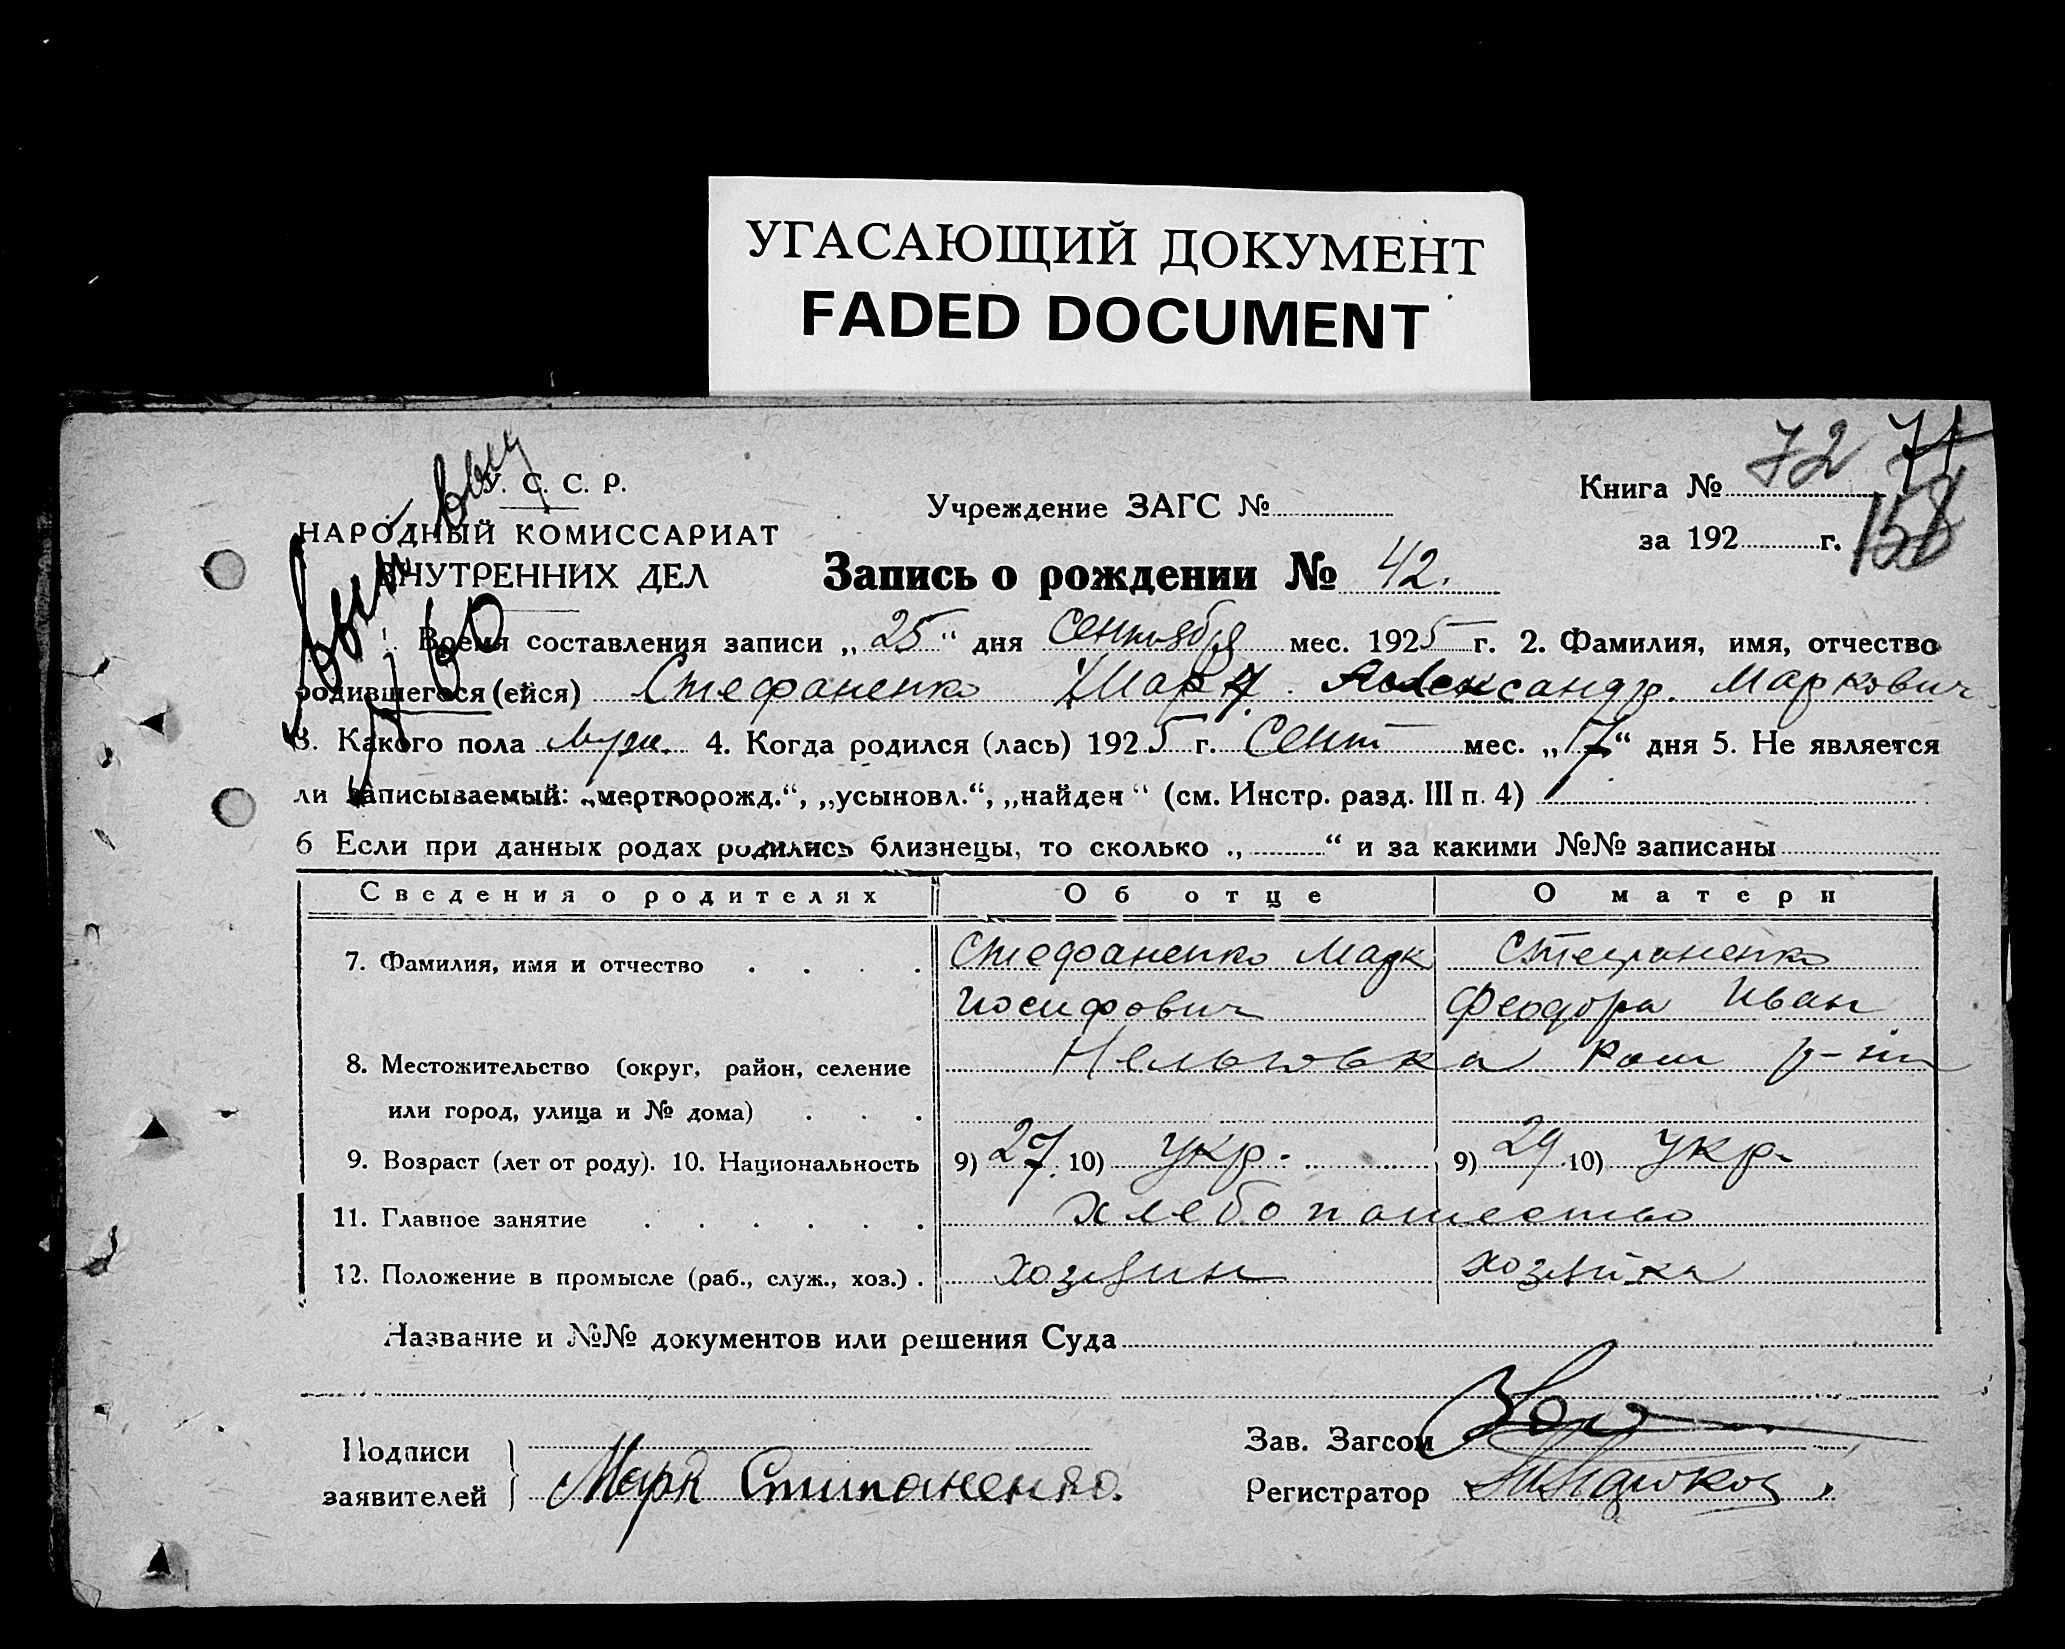 УГАСАЮЩИЙ ДОКУМЕНТ
FADED DOCUMENT
72 71
158
У. С. С. Р.
НАРОДНЫЙ КОМИССАРИАТ
ВНУТРЕННИХ ДЕЛ
Учреждение ЗАГС №
Книга №
за 192 г.
Запись о рождении № 42.
Время составления записи „25“ дня Сентября мес. 1925 г. 2. Фамилия, имя, отчество
родившегося (ейся) Стефаненко Александр. Маркович
3. Какого пола муж. 4. Когда родился (лась) 1925 г. Сент мес. „7“ дня 5. Не является
ли записываемый: „мертворожд.“, „усыновл.“, „найден“ (см. Инстр. разд. III п. 4)
6 Если при данных родах родились близнецы, то сколько „ “ и за какими №№ записаны
Сведения о родителях Об отце О матери
7. Фамилия, имя и отчество Стефаненко Марк Стефаненко
Иосифович Феодора Иван
8. Местожительство (округ, район, селение р-н
или город, улица и № дома)
9. Возраст (лет от роду). 10. Национальность 9) 27 10) укр. 9) 29 10) укр.
11. Главное занятие хлебопашество
12. Положение в промысле (раб., служ., хоз.) хозяин хозяйка
Название и №№ документов или решения Суда
Подписи
заявителей Марк Стипаненко.
Зав. Загсом
Регистратор